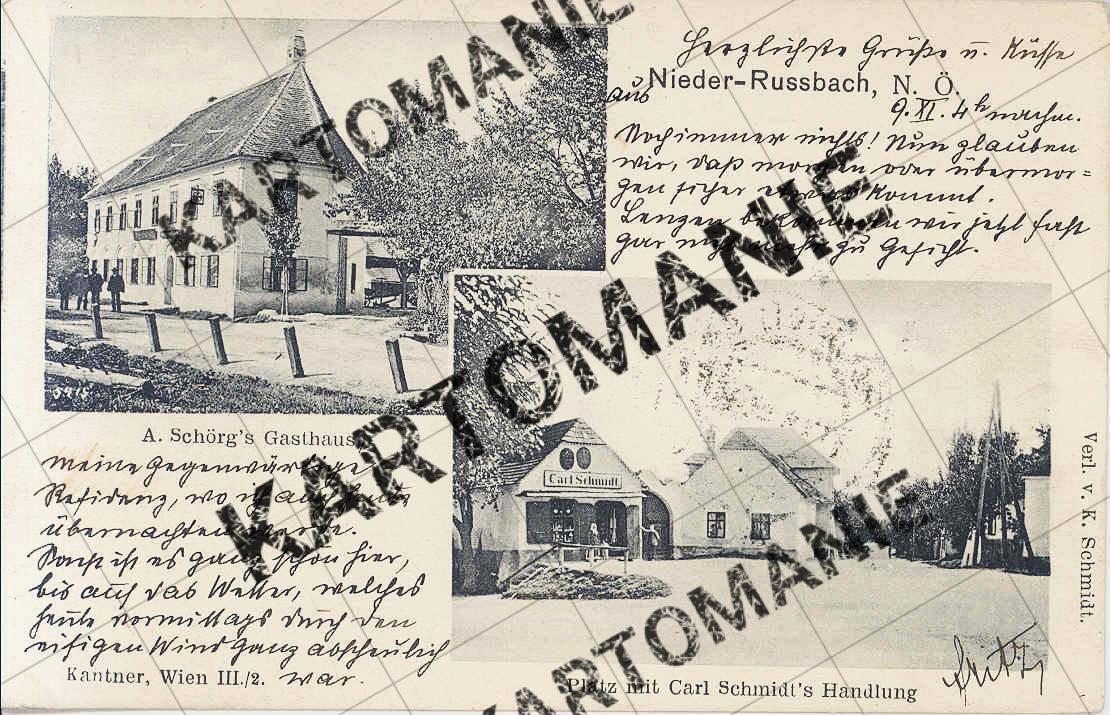 Herzlichste Grüße u. Küsse
aus Nieder-Russbach, N. Ö.
9. XI. 4h nachm.
Noch immer nichts! Nun glauben
wir, daß morgen oder übermor=
gen sicher etwas kommt.
Lenzen bekommen wir jetzt fast
gar nicht mehr zu Gesicht.
A. Schörg's Gasthaus
Meine gegenwärtige
Residenz, wo ich auch heute
übernachten werde.
Sonst ist es ganz schön hier,
bis auf das Wetter, welches
heute vormittags durch den
eisigen Wind ganz abscheulich
war.
Kantner, Wien III./2.
Carl Schmidt
Platz mit Carl Schmidt's Handlung
Fritz
Verl. v. K. Schmidt.
KARTOMANIE
KARTOMANIE
KARTOMANIE
KARTOMANIE